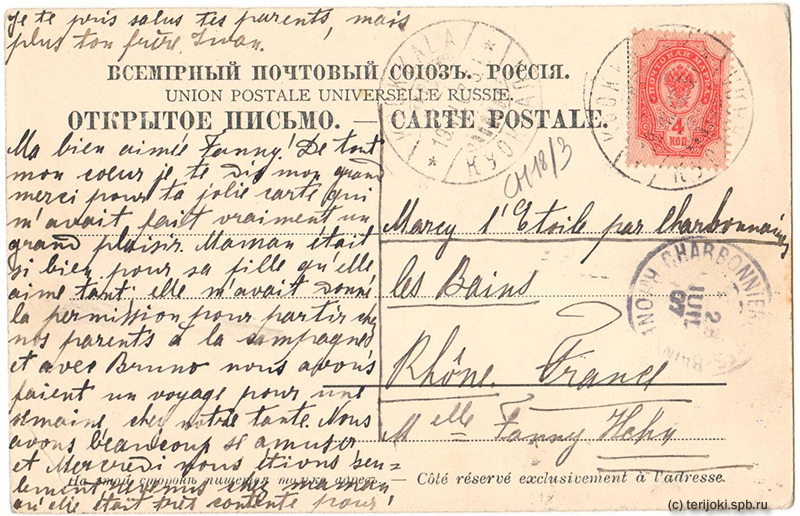 Je te pris salus tes parents, mais
plus ton frère Iwan.
ВСЕМІРНЫЙ ПОЧТОВЫЙ СОЮЗЪ. РОССІЯ.
UNION POSTALE UNIVERSELLE RUSSIE.
ОТКРЫТОЕ ПИСЬМО. — CARTE POSTALE.
ПОЧТОВАЯ МАРКА
4
КОП.
KUOKKALA
CH 18/3
Ma bien aimée Fanny! De tout
mon coeur je te dis mon grand
merci pour ta jolie carte qui
m'avait fait vraiment un
grand plaisir. Maman était
si bien pour sa fille qu'elle
aime tant: elle m'avait donné
la permission pour partir chez
nos parents à la campagnes
et avec Bruno nous avons
faient un voyage pour une
semaine chez notre tante. Nous
avons beaucoup se amuser
et Mercredi nous étions seu=
lement revenus chez maman
qu'elle était très contente pour
Marcy l'Etoile par Charbonnières
les Bains
Rhône. France
Melle Fanny
CHARBONNIERES-LES-BAINS
JUIL
07
На этой сторонѣ пишется только адресъ. — Côté réservé exclusivement à l'adresse.
(c) terijoki.spb.ru